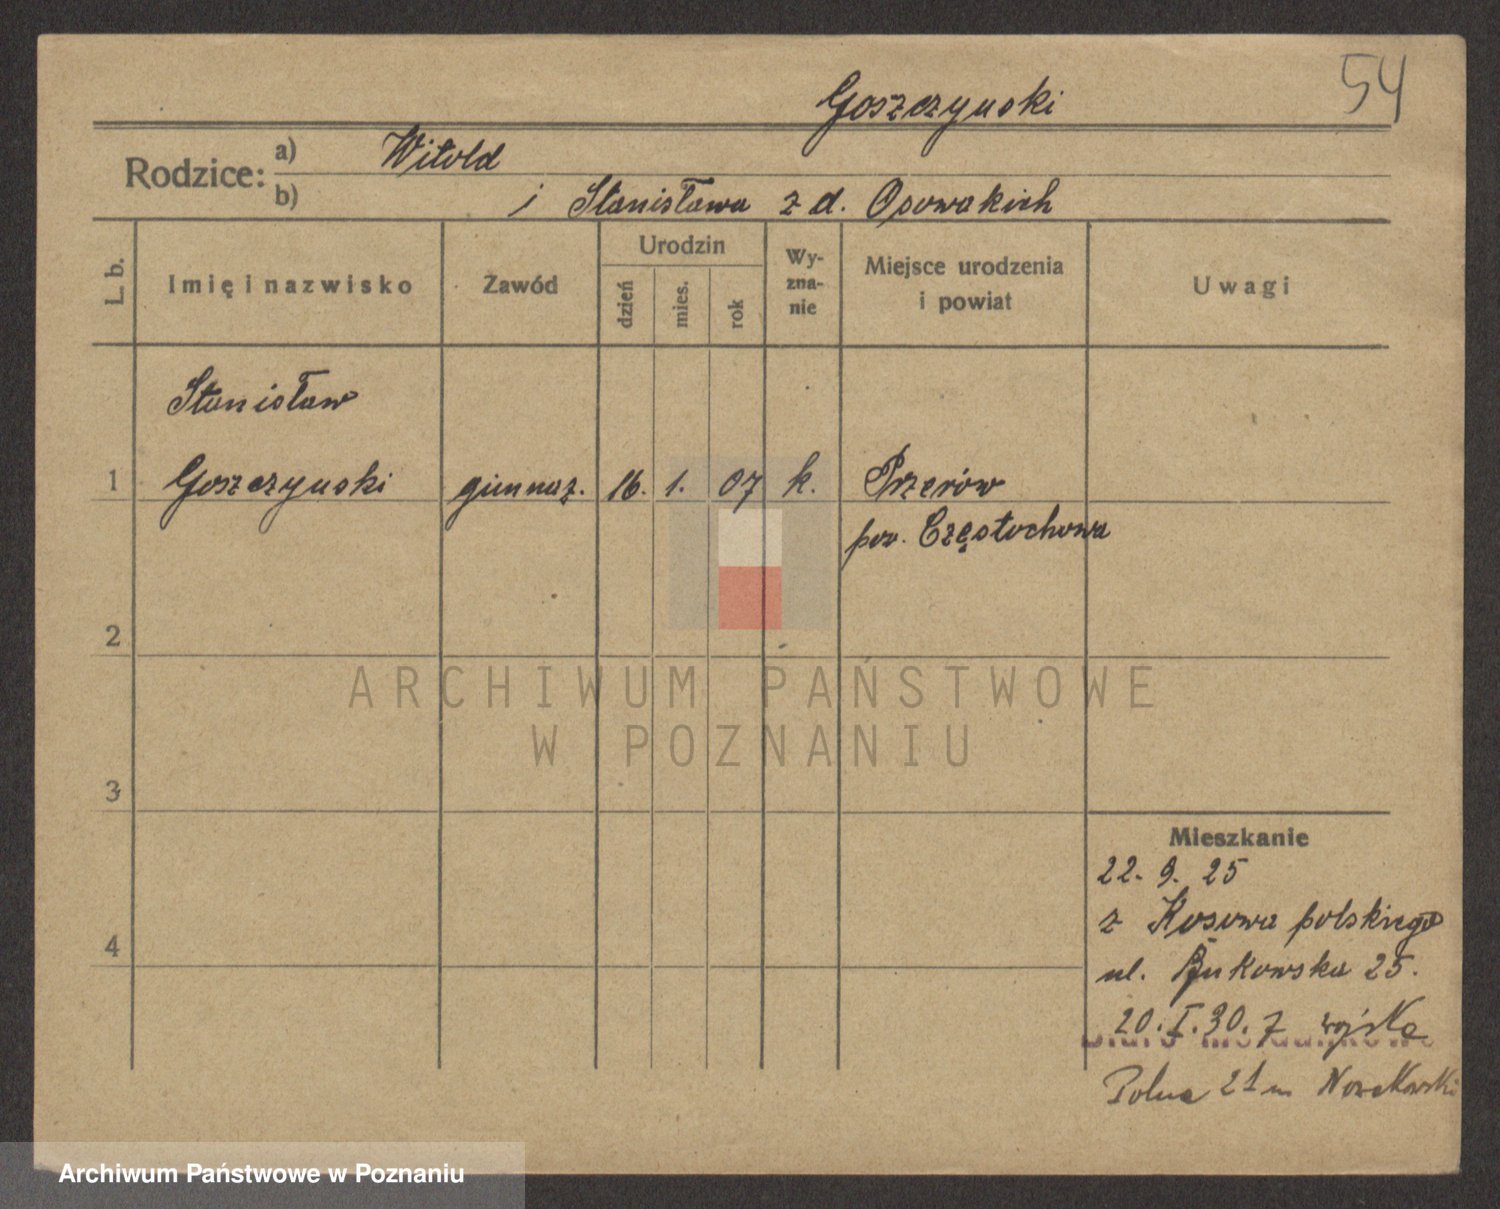 54
Goszczynski
Rodzice: a) Witold
b) i Stanisława z d. Osowskich
L. b.
Imię i nazwisko
Zawód
Urodzin
dzień
mies.
rok
Wy-
zna-
nie
Miejsce urodzenia
i powiat
Uwagi
Stanisław
1 Goszczynski gimnaz. 16. 1. 07 k. Przerów
pow. Częstochowa
2
3
4
ARCHIWUM PAŃSTWOWE
W POZNANIU
Mieszkanie
22. 9. 25
z Kosowa polskiego
ul. Bukowska 25.
20. I. 30. z wojska
Biuro Meldunkowe
Polna 21 m Nowakowski
Archiwum Państwowe w Poznaniu